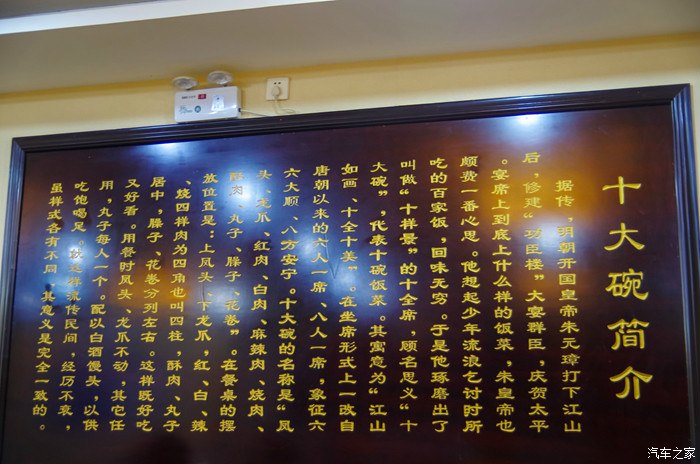 十大碗简介
据传，明朝开国皇帝朱元璋打下江山
后，修建“功臣楼”大宴群臣，庆贺太平
。宴席上到底上什么样的饭菜，朱皇帝也
颇费一番心思。他想起少年流浪乞讨时所
吃的百家饭，回味无穷。于是他琢磨出了
叫做“十样景”的十全席，顾名思义“十
大碗”，代表十碗饭菜。其寓意为“江山
如画、十全十美”。在坐席形式上一改自
唐朝以来的六人一席、八人一席，象征六
六大顺、八方安宁。十大碗的名称是“凤
头、龙爪、红肉、白肉、麻辣肉、烧肉、
酥肉、丸子、臊子、花卷”。在餐桌的摆
放位置是：上凤头、下龙爪，红、白、辣
、烧四样肉为四角也叫四柱，酥肉、丸子
居中，臊子、花卷分列左右。这样既好吃
又好看。用餐时凤头、龙爪不动，其它任
用，丸子每人一个。配以白酒馒头，以供
吃饱喝足。故这样流传民间，经历不衰，
虽样式各有不同 其意义是完全一致的。
汽车之家